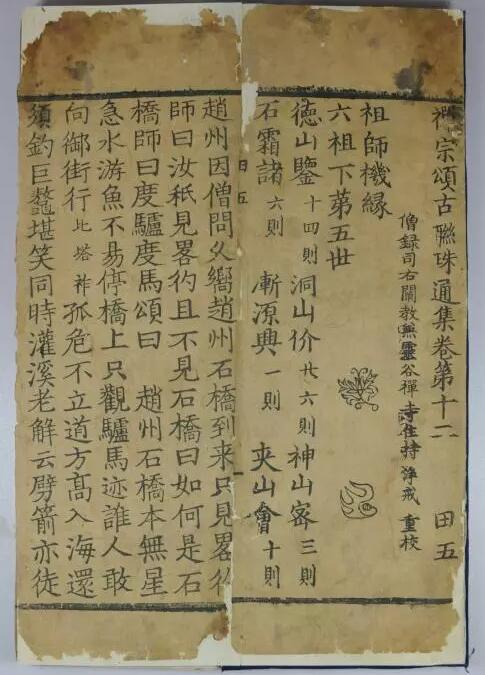 禪宗頌古聯珠通集卷第十二 田五
僧録司右闡教兼靈谷禪寺住持 淨戒 重校
祖師機緣
六祖下第五世
德山鑒十四則 洞山价廿六則 神山密三則
石霜諸六則 漸源興一則 夾山會十則
田五
趙州因僧問久嚮趙州石橋到来只見畧彴
師曰汝秖見畧彴且不見石橋曰如何是石
橋師曰度驢度馬頌曰 趙州石橋本無星
急水游魚不易停橋上只觀驢馬迹誰人敢
向御街行 比塔祚 孤危不立道方髙入海還
須釣巨鼇堪笑同時灌溪老解云劈箭亦徒